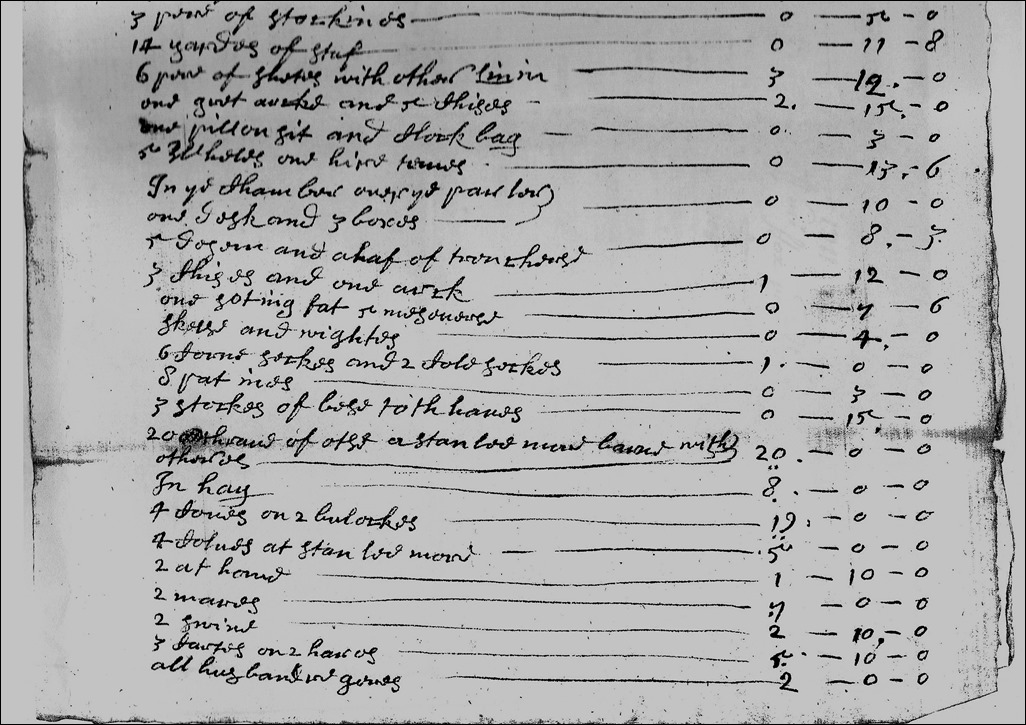 3 pere of stockines — 0 — 5 — 0
14 yardes of stuf — 0 — 11 — 8
6 pere of shetes with other linin — 3 — 12 — 0
one gret arcke and 5 chises — 2 — 15 — 0
one pillon sit and clock bag — 0 — 3 — 0
5 one — 0 — 13 — 6
In ye chamber over ye parler
one desk and 3 boxes — 0 — 10 — 0
5 dosen and a haf of trenchers — 0 — 8 — 3
3 chises and one arck — 1 — 12 — 0
one fat 5 meseuers — 0 — 7 — 6
and wightes — 0 — 4 — 0
6 corne seckes and 2 cole seckes — 1 — 0 — 0
8 pat ines — 0 — 3 — 0
3 stockes of bese — 0 — 15 — 0
20 thrave of otse a stan lee more barne with
otheres — 20 — 0 — 0
In hay — 8 — 0 — 0
4 coues on 2 bulockes — 19 — 0 — 0
4 colues at stan lee more — 5 — 0 — 0
2 at home — 1 — 10 — 0
2 mares — 7 — 0 — 0
2 swine — 2 — 10 — 0
3 cartes on 2 haros — 5 — 10 — 0
all husbandre geres — 2 — 0 — 0